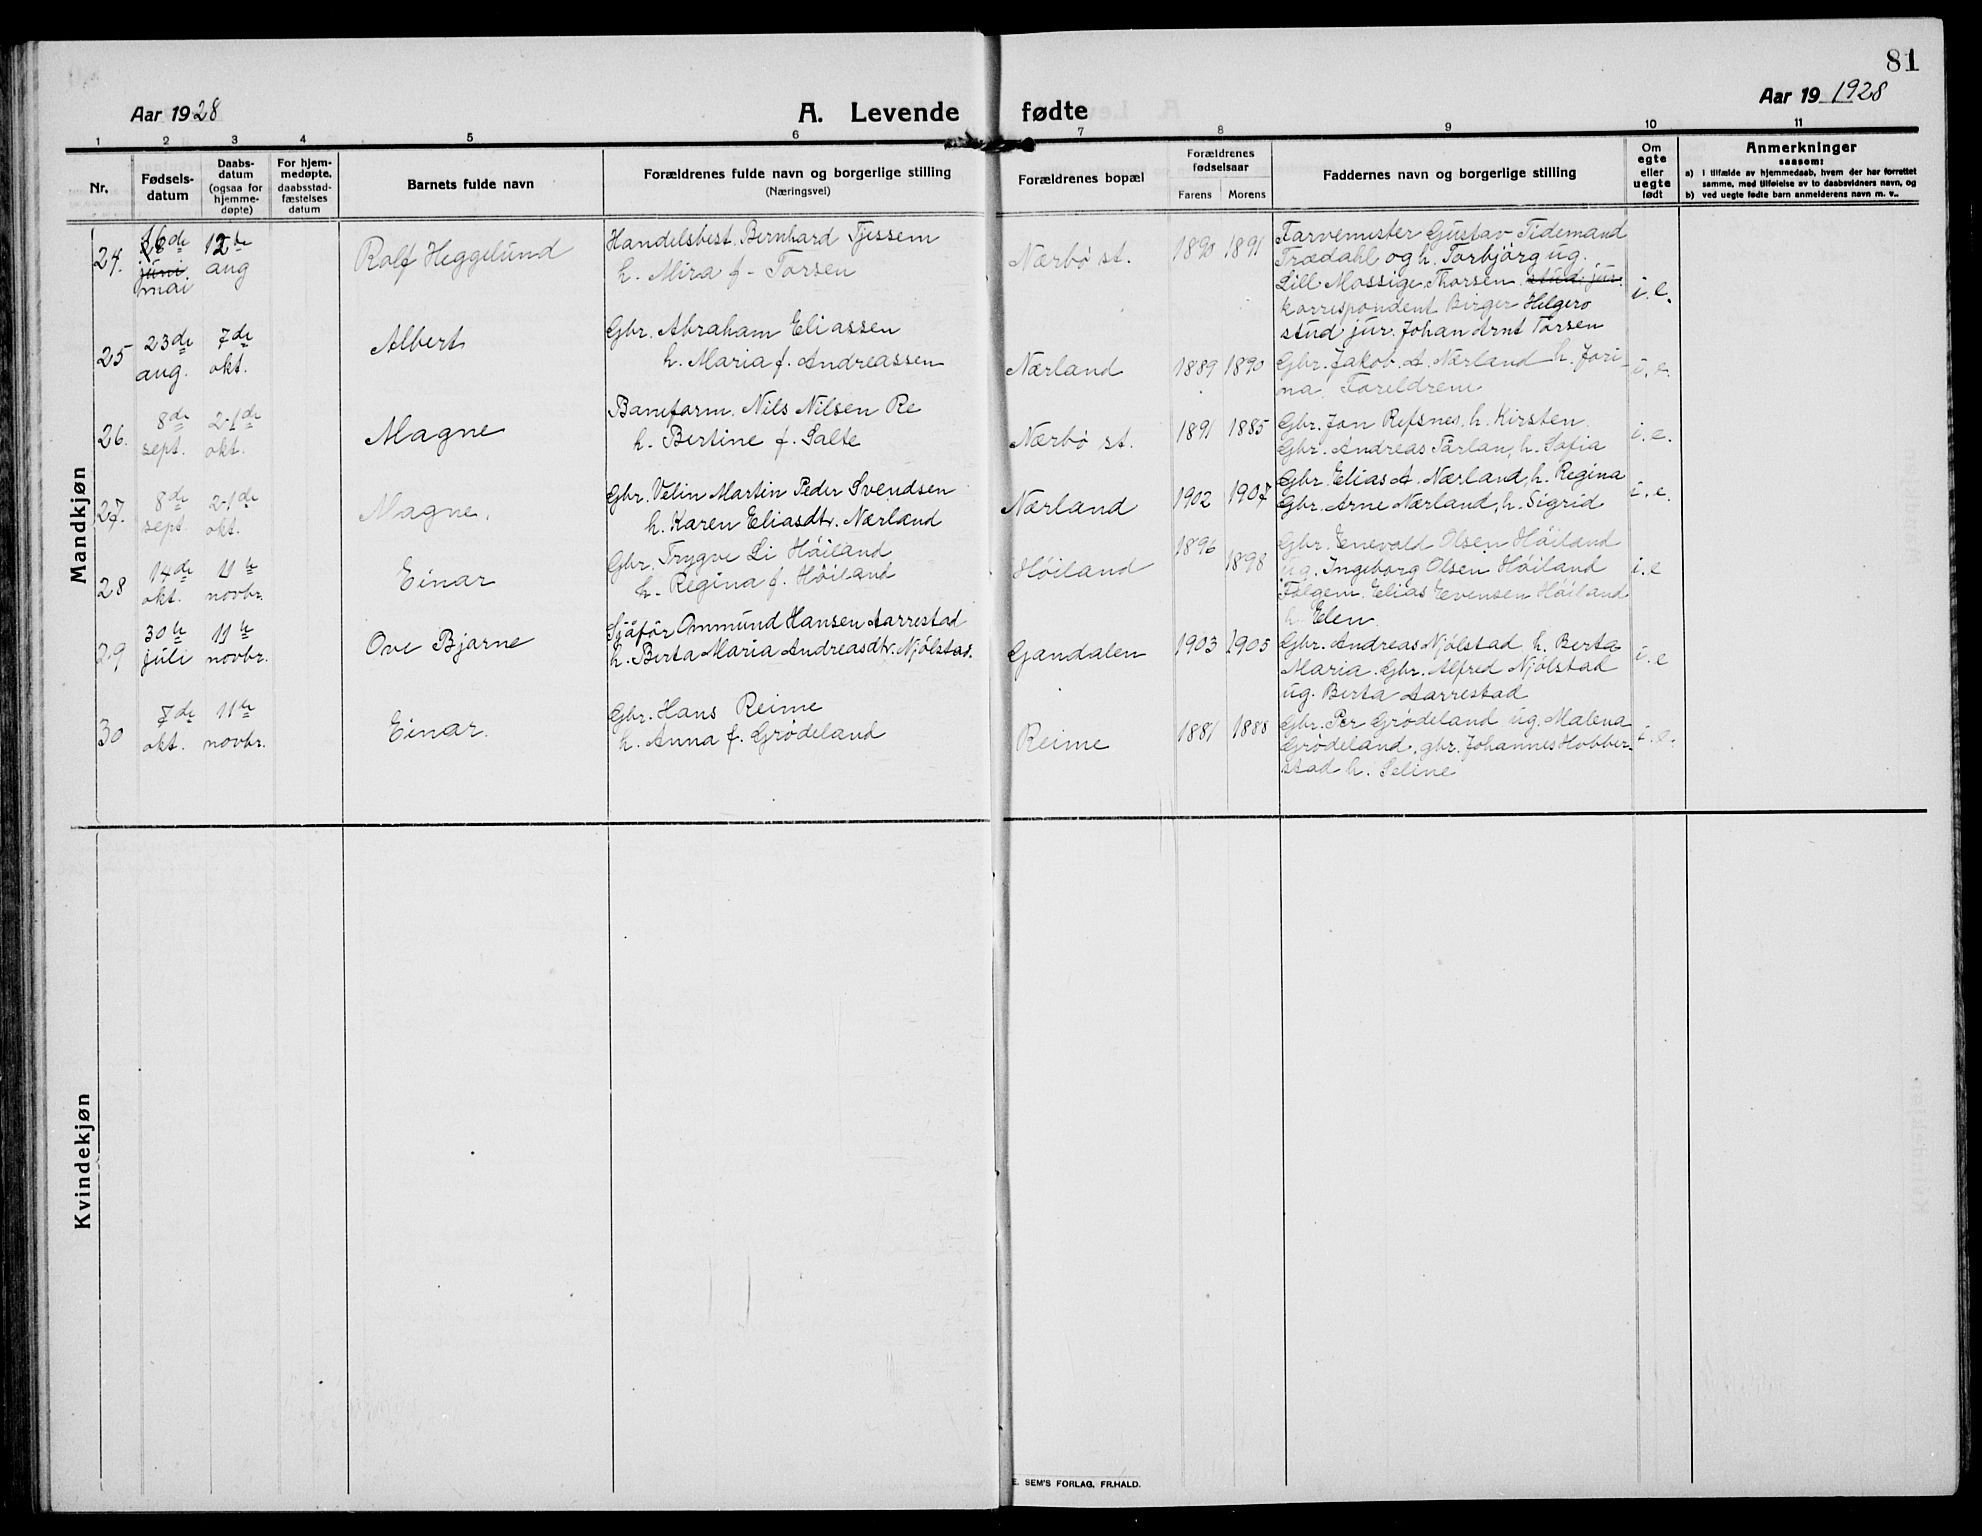 81
Aar 1928
A. Levende fødte
Aar 19 1928
1 2 3 4 5 6 7 8 9 10 11
Nr.
Fødsels-
datum
Daabs-
datum
(ogsaa for
hjemme-
døpte)
For hjem-
medøpte,
daabsstad-
fæstelses
datum
Barnets fulde navn
Forældrenes fulde navn og borgerlige stilling
(Næringsvei)
Forældrenes bopæl
Forældrenes
fødselsaar
Farens Morens
Faddernes navn og borgerlige stilling
Om
egte
eller
uegte
født
Anmerkninger
saasom:
a) i tilfælde av hjemmedaab, hvem der har forrettet
samme, med tilføielse av to daabsvidners navn, og
b) ved uegte fødte barn anmelderens navn m. v..
Mandkjøn
24.
juni
mai
12te
aug
Rolf Heggelund
Handelsbest. Bernhard Tjessem
h. Mira f. Torsen
Nærbø st.
1890 1891
Farvemester Gustav Tidemand
Trædahl og h. Torbjörg ug.
Lill Mossige Thorsen stud. jur.
korrespondent Birger Helgerø
stud jur. Johan Arnt Torsen
i. e.
25
23de
aug.
7de
okt.
Albert
Gbr. Abraham Eliassen
h. Maria f. Andreassen
Nærland
1889 1890
Gbr. Jakob A. Nærland h. Jori-
na Foreldrene
i. e.
26.
8de
sept.
21de
okt.
Magne
Baneform. Nils Nilsen Re
h. Bertine f. Salte
Nærbö st.
1891 1885
Gbr. Jon Refsnes, h. Kirsten.
Gbr. Andreas Tårlan, h. Sofia
i. e.
27.
8de
sept.
21de
okt.
Magne.
Gbr. Velin Martin Peder Svendsen
h. Karen Eliasdtr. Nærland
Nærland
1902 1907
Gbr. Elias A. Nærland, h. Regina
Gbr. Arne Nærland, h. Sigrid
i. e.
28
14de
okt.
11te
novbr.
Einar
Gbr. Trygve Li Höiland
h. Regina f. Höiland
Höiland
1896
1898
Gbr. Enevald Olsen Höiland
ug. Ingeborg Olsen Höiland
Følgem. Elias Evensen Höiland
h. Elen.
i. e
29
30te
juli
11te
novbr.
Ove Bjarne
Sjåför Ommund Hansen Aarrestad
h. Berta Maria Andreasdtr. Njølstad.
Gandalen
1903 1905
Gbr. Andreas Njölstad h. Berta
Maria. Gbr. Alfred Njölstad
ug. Berta Aarrestad
i. e
30
7de
okt.
11te
novbr.
Einar.
Gbr. Hans Reime
h. Anna f. Grödeland
Reime
1881 1888
Gbr. Per Grödeland ug. Malena
Grödeland, gbr. Johannes Hobber-
stad h. Seline
i. e.
Kvindekjøn
E. SEM'S FORLAG, FR.HALD.